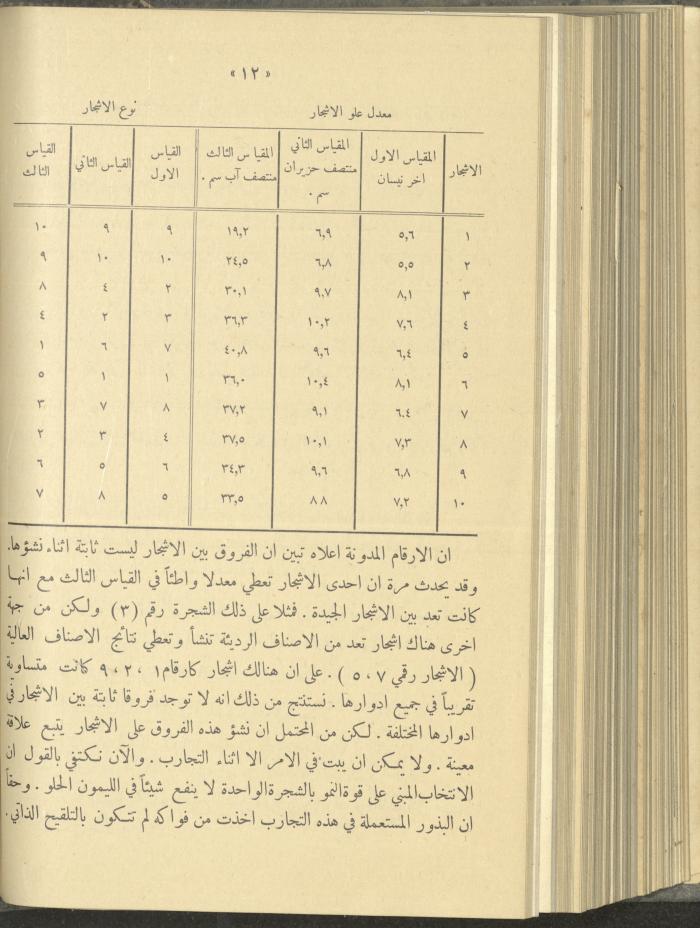 « ١٢ »
معدل علو الاشجار نوع الاشجار
الاشجار المقياس الاول اخر نيسان المقياس الثاني منتصف حزيران سم . المقياس الثالث منتصف آب سم . القياس الاول القياس الثاني القياس الثالث
١ ٥,٦ ٦,٩ ١٩,٢ ٩ ٩ ١٠
٢ ٥,٥ ٦,٨ ٢٤,٥ ١٠ ١٠ ٩
٣ ٨,١ ٩,٧ ٣٠,١ ٢ ٤ ٨
٤ ٧,٦ ١٠,٢ ٣٦,٣ ٣ ٢ ٤
٥ ٦,٤ ٩,٦ ٤٠,٨ ٧ ٦ ١
٦ ٨,١ ١٠,٤ ٣٦,٠ ١ ١ ٥
٧ ٦.٤ ٩,١ ٣٧,٢ ٨ ٧ ٣
٨ ٧,٣ ١٠,١ ٣٧,٥ ٤ ٣ ٢
٩ ٦,٨ ٩,٦ ٣٤,٣ ٦ ٥ ٦
١٠ ٧,٢ ٨٨ ٣٣,٥ ٥ ٨ ٧
ان الارقام المدونة اعلاه تبين ان الفروق بين الاشجار ليست ثابتة اثناء نشؤها.
وقد يحدث مرة ان احدى الاشجار تعطي معدلا واطئاً في القياس الثالث مع انها
كانت تعد بين الاشجار الجيدة . فمثلا على ذلك الشجرة رقم (٣) ولكن من جهة
اخرى هناك اشجار تعد من الاصناف الرديئة تنشأ وتعطي نتائج الاصناف العالية
( الاشجار رقمي ٧ ، ٥ ) . على ان هنالك اشجار كارقام ١ ، ٢ ، ٩ كانت متساوية
تقريباً في جميع ادوارها . نستنتج من ذلك انه لا توجد فروقا ثابتة بين الاشجار في
ادوارها المختلفة . لكن من المحتمل ان نشؤ هذه الفروق على الاشجار يتبع علاقة
معينة . ولا يمكن ان يبت في الامر الا اثناء التجارب . والآن نكتفي بالقول ان
الانتخاب المبني على قوة النمو بالشجرة الواحدة لا ينفع شيئاً في الليمون الحلو . وحقاً
ان البذور المستعملة في هذه التجارب اخذت من فواكه لم تتكون بالتلقيح الذاتي.